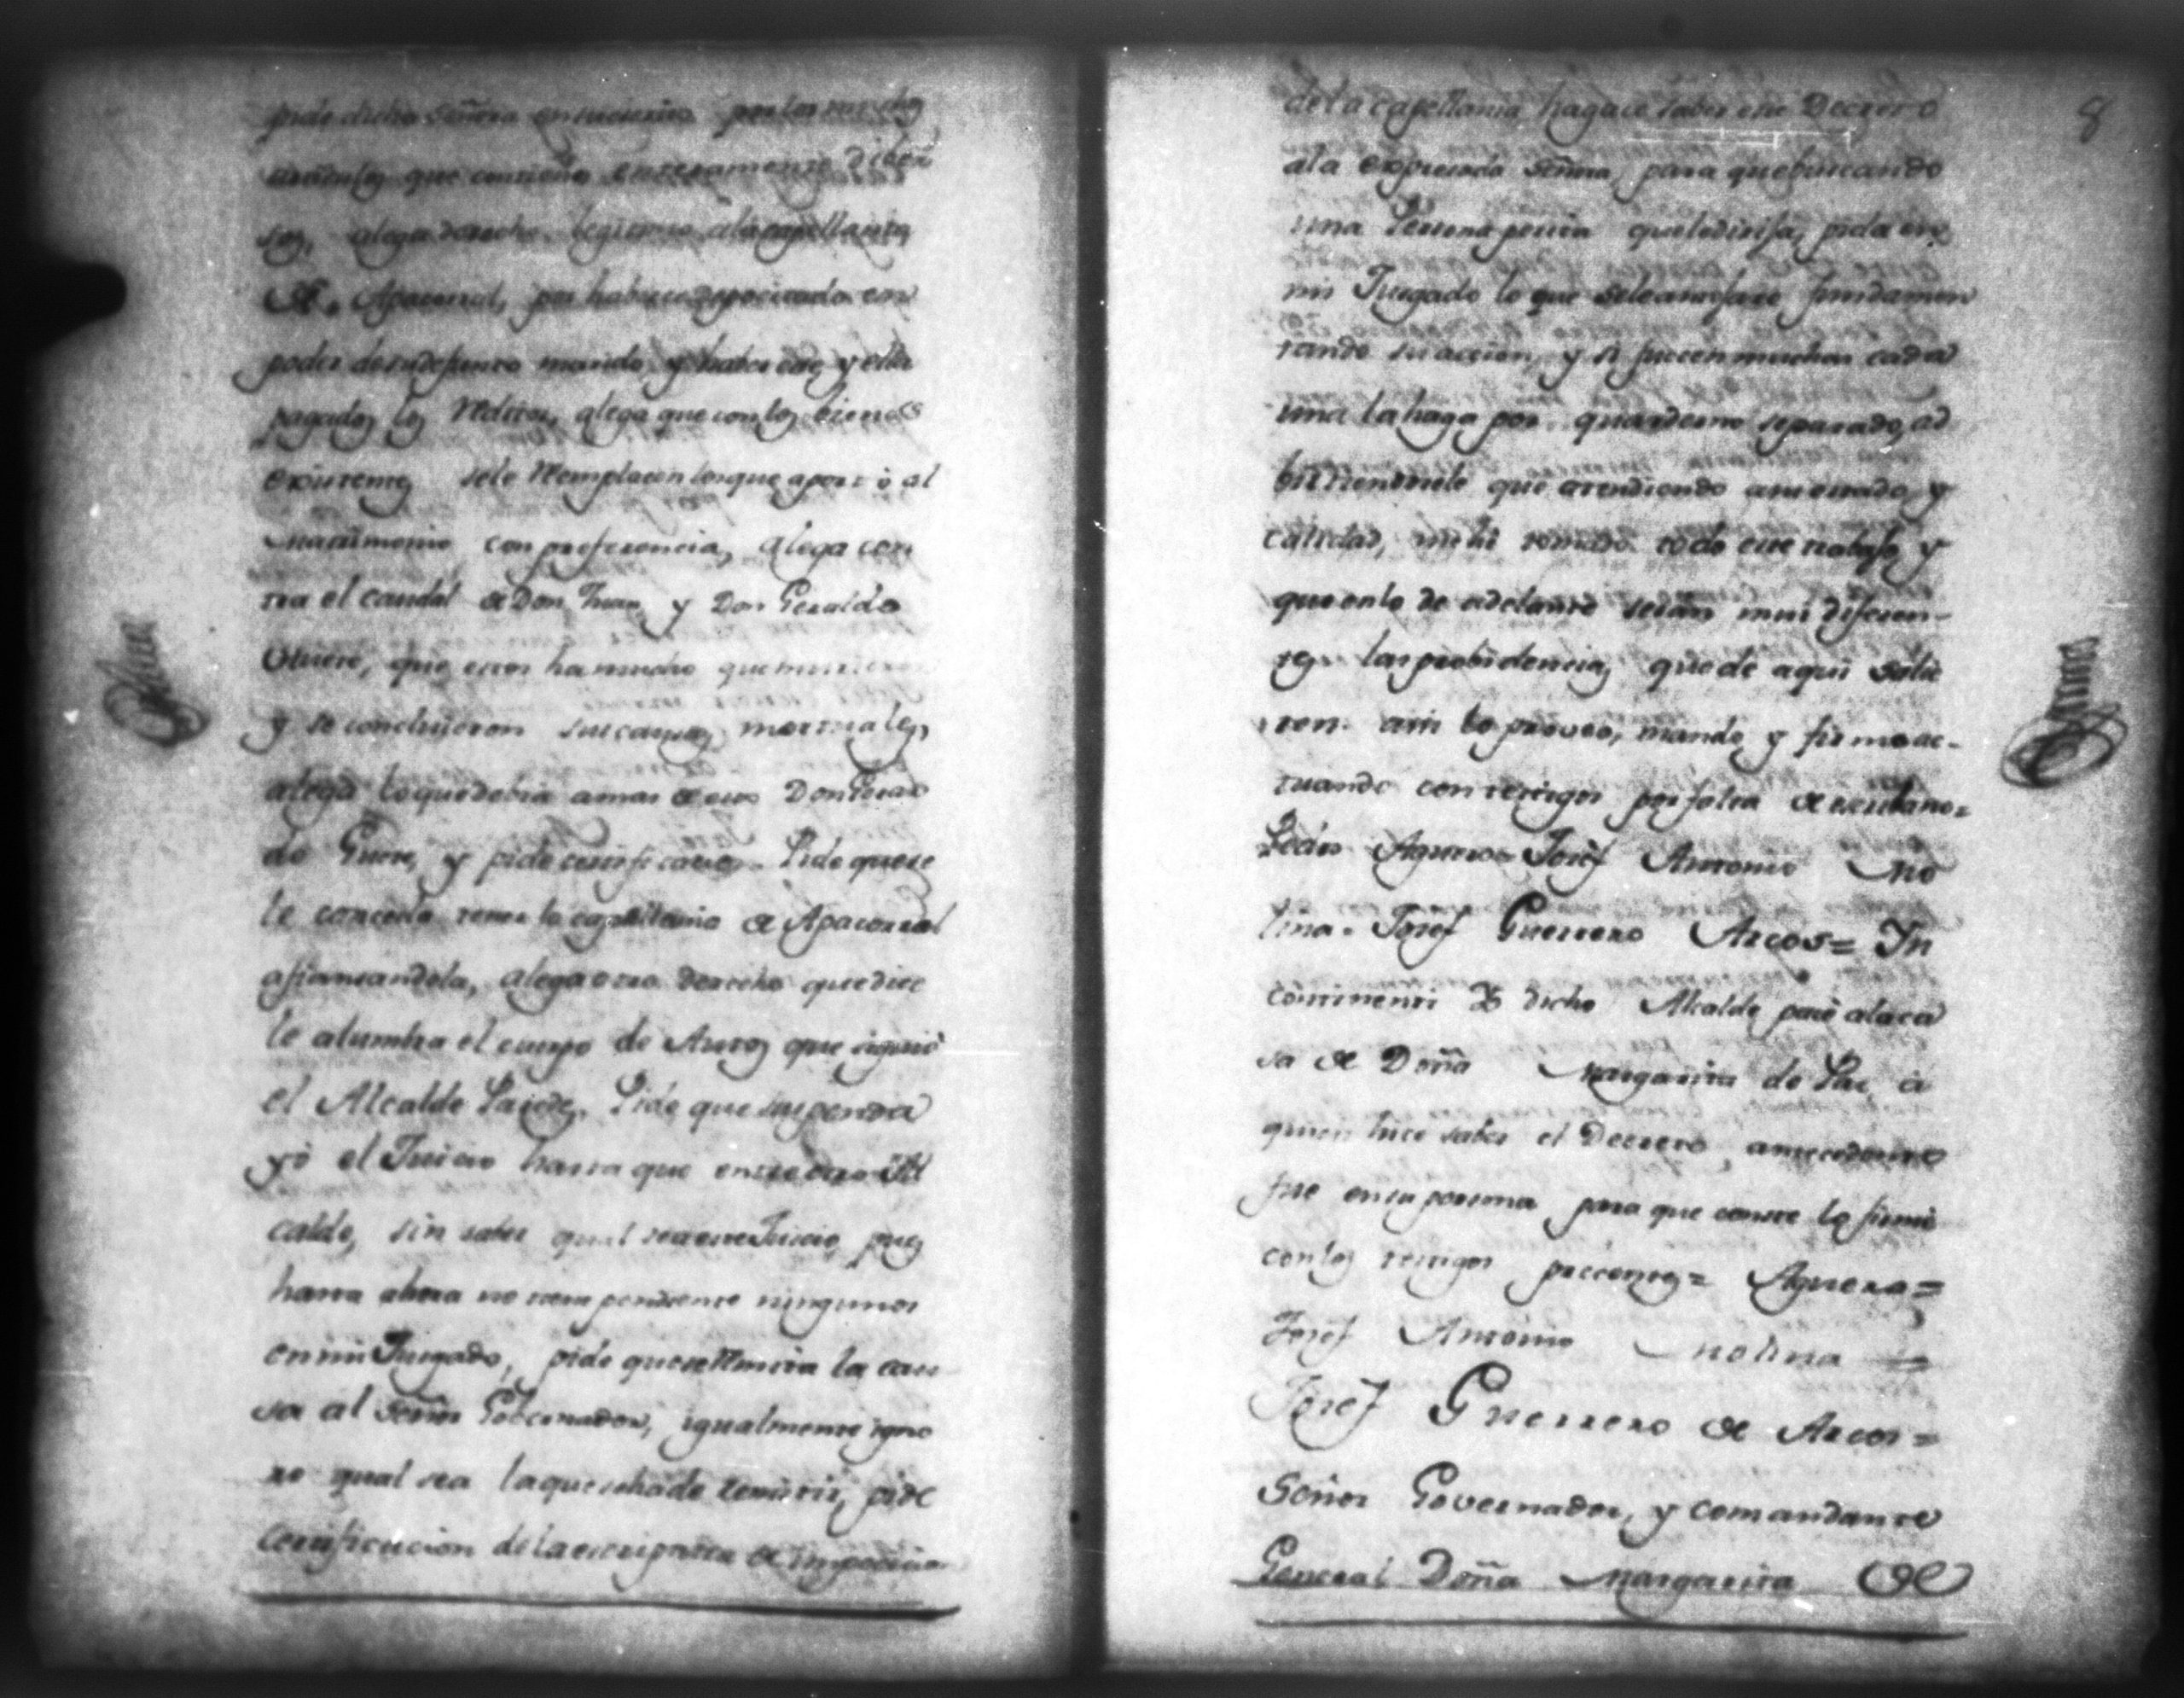 pide dicha Señora
articulos que contiene enteramente diber
sos, alega derecho legitimo ala capellania
de Apacorral, por haberse depocitado en
poder desu defunto marido, y haber este y ella
pagados los Reditos, alega que con los bienes
existentes sele Remplacen losque aportó al
matrimonio con preferencia, alega con
tra el caudal de Don Juan y Don Geraldo
que estos ha mucho que murieron
y se concluyeron sus causas mortuales,
alega loque debia amas de eso Don Geral
do y pide certificados. Pide que se
le conceda tener la capellania de Apacorral
afiansandola, alega otro derecho que dice
le alumbra el cuerpo de Autos que siguió
el Alcalde Pide que suspenda
yó el Juicio hasta que entre otro Al
calde, sin saber qual sea este Juicio, pues
hasta ahora no tiene pendiente ningunos
en mi Jusgado, pide quese Remita la cau
sa al Señor Gobernador, igualmente igno
ro qual sea la que seha de remitir, pide
certificacion dela escriptura de impocicion
8
dela capellania hagace saber este Decreto
ala expresada Señora, para que buscando
una Persona perita que la dirija, pida en
mi Jusgado lo que sele antojare fundamen
tando su accion, y si fueren muchas cada
una la haga por quaderno separado, ad
birtiendole que atendiendo a su estado, y
calidad, me hé tomado todo este trabajo, y
que en lo de adelante serán mui diferen-
tes las probidencias que de aqui salie
ren. asi lo proveo, mando y firmo ac-
tuando con testigos por falta de escribano=
Aguero= Josef Antonio Mo
lina= Josef Guerrero Arcos= In
continenti Yo dicho Alcalde pasé ala ca
sa de Doña Margarita de Paz, á
quien hice saber el Decreto antecedente
fue en su persona, para que conste lo firmé
con los testigos precentes= Aguero=
Josef Antonio Molina=
Josef Guerrero de Arcos=
Señor Governador, y comandante
General Doña Margarita de